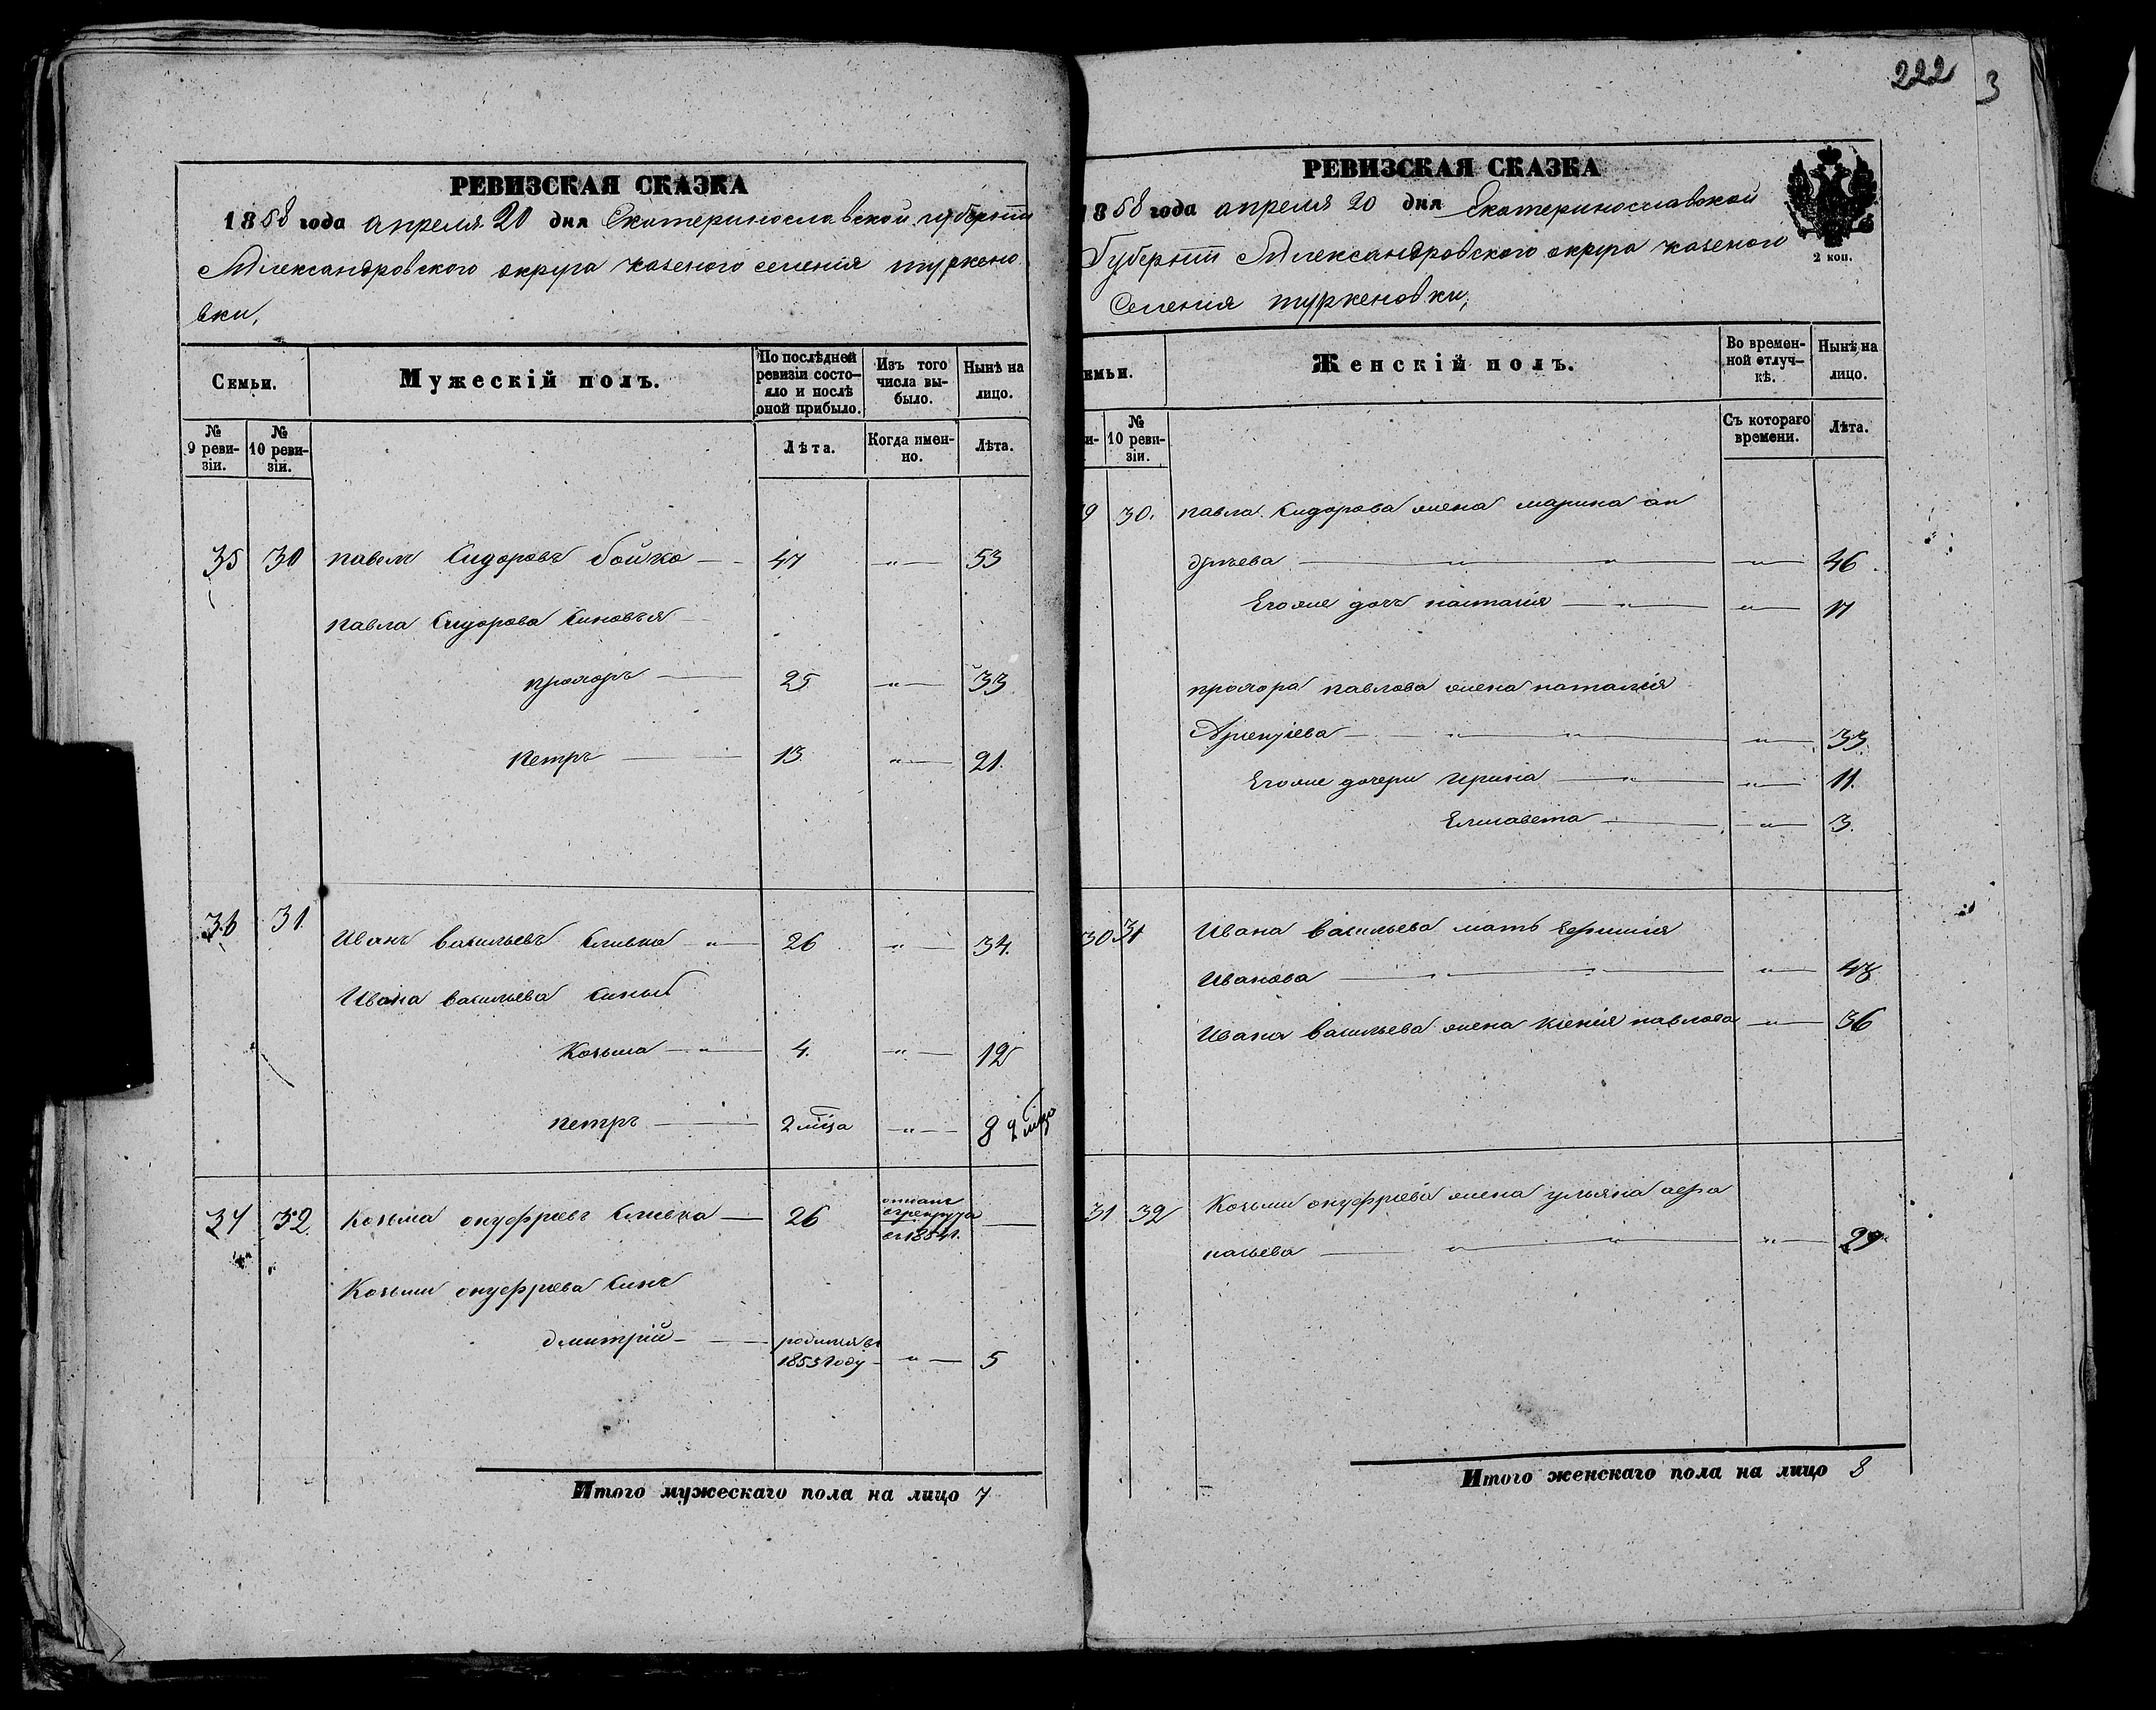 РЕВИЗСКАЯ СКАЗКА
1858 года апреля 20 дня Екатеринославской губерніи
Александровского округа казеного селенія туркено
вки,
Семьи.
Мужескій полъ.
По послѣдней ревизіи состо-
яло и послѣ оной прибыло.
Изъ того числа вы-
было.
Нынѣ на лицо.
№ 9 реви-
зіи.
№ 10 реви-
зіи.
Лѣта.
Когда имен-
но.
Лѣта.
35 30 павелъ Сидоровъ бойко — 47 "— 53
павла Сидорова Синовья
прохоръ — 25 "— 33
петръ — 13 "— 21.
36 31. Иванъ васильевъ Сливка "— 26 "— 34.
Ивана васильева Сины
Козьма —"— 4. "— 12
петръ — 2 мца "— 8 2 мца
37 32. Козьма онуфріевъ Сливка — 26 —
в 1854 г.
Козьми онуфріева Синъ
дмитрій — родился въ
1853 году — "— 5
Итого мужескаго пола на лицо 7
222 3
РЕВИЗСКАЯ СКАЗКА
1858 года апреля 20 дня Екатеринославской
Губерніи Александровского округа казеного
Селенія туркеновки,
2 коп.
емьи.
Женскій полъ.
Во времен-
ной отлуч-
кѣ.
Нынѣ на лицо.
и-
№ 10 реви-
зіи.
Съ котораго времени.
Лѣта.
9 30. павла Сидорова жена марина ан
дрѣева — " — " — "— 46
Егоже дочь наталія —"— "— 17
прохора павлова жена наталія
— " — " — "— 33
Егоже дочери Ирина —"— "— 11.
Елисавета — "— 3.
30 31 Ивана васильева мать Ефимія
Иванова — " — " — "—
Ивана васильева жена ксенія павлова "— 36
31 32 Козьми онуфріева жена ульяна афа
насьева — " — " — "— 29
Итого женскаго пола на лицо 8